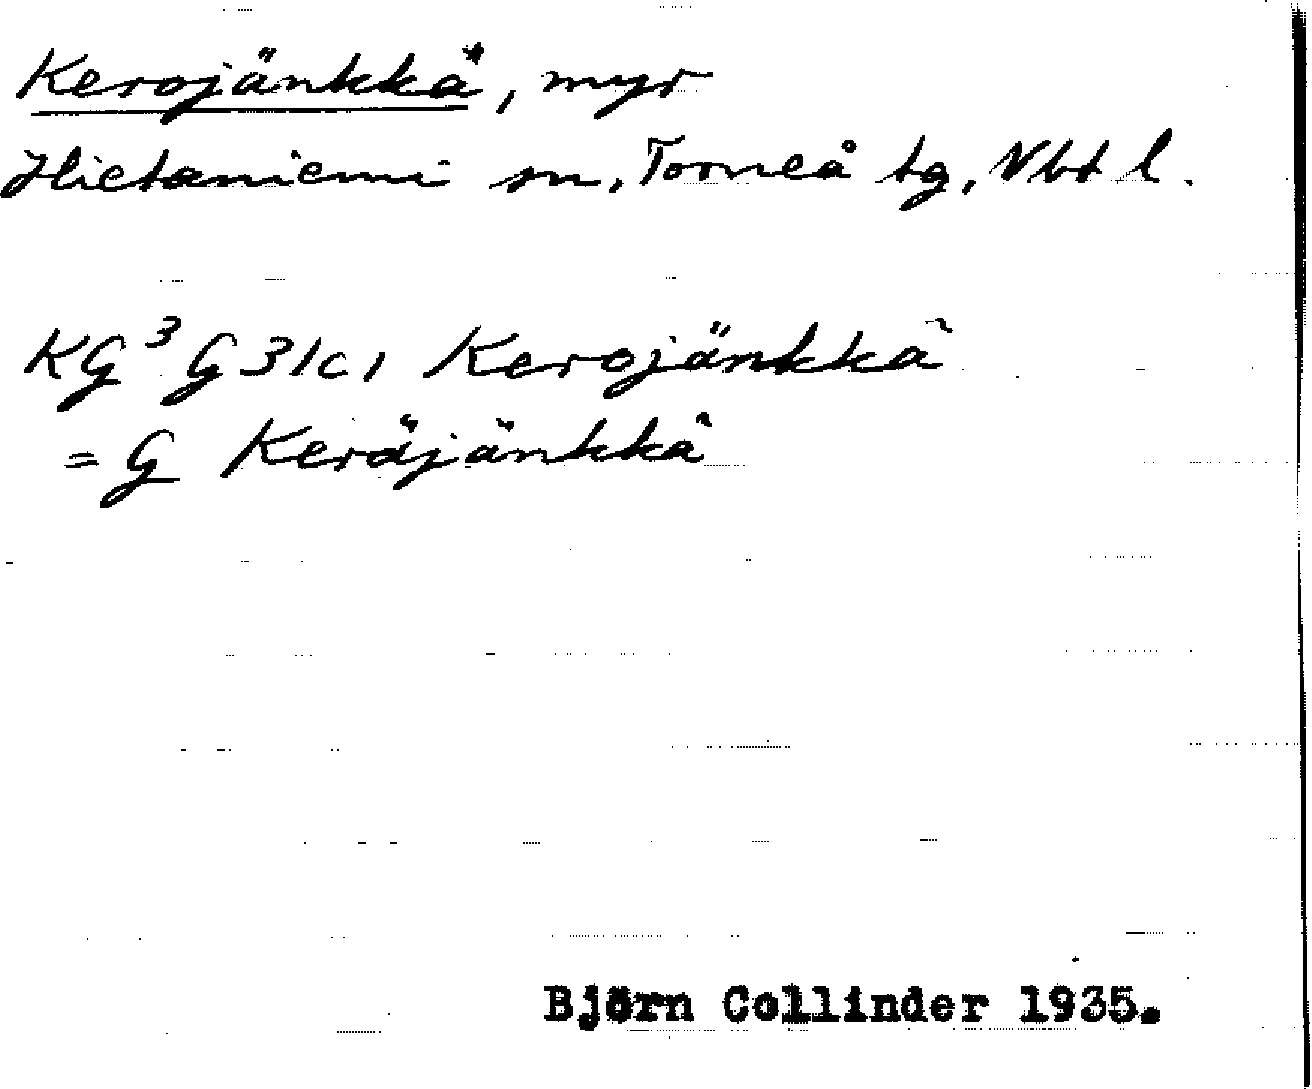 Kerojänkkä, myr
Hietaniemi sn, Torneå tg, Nbt l.
KG³ G31c1 Kerojänkkä
= G Keräjänkkä
Björn Collinder 1935.